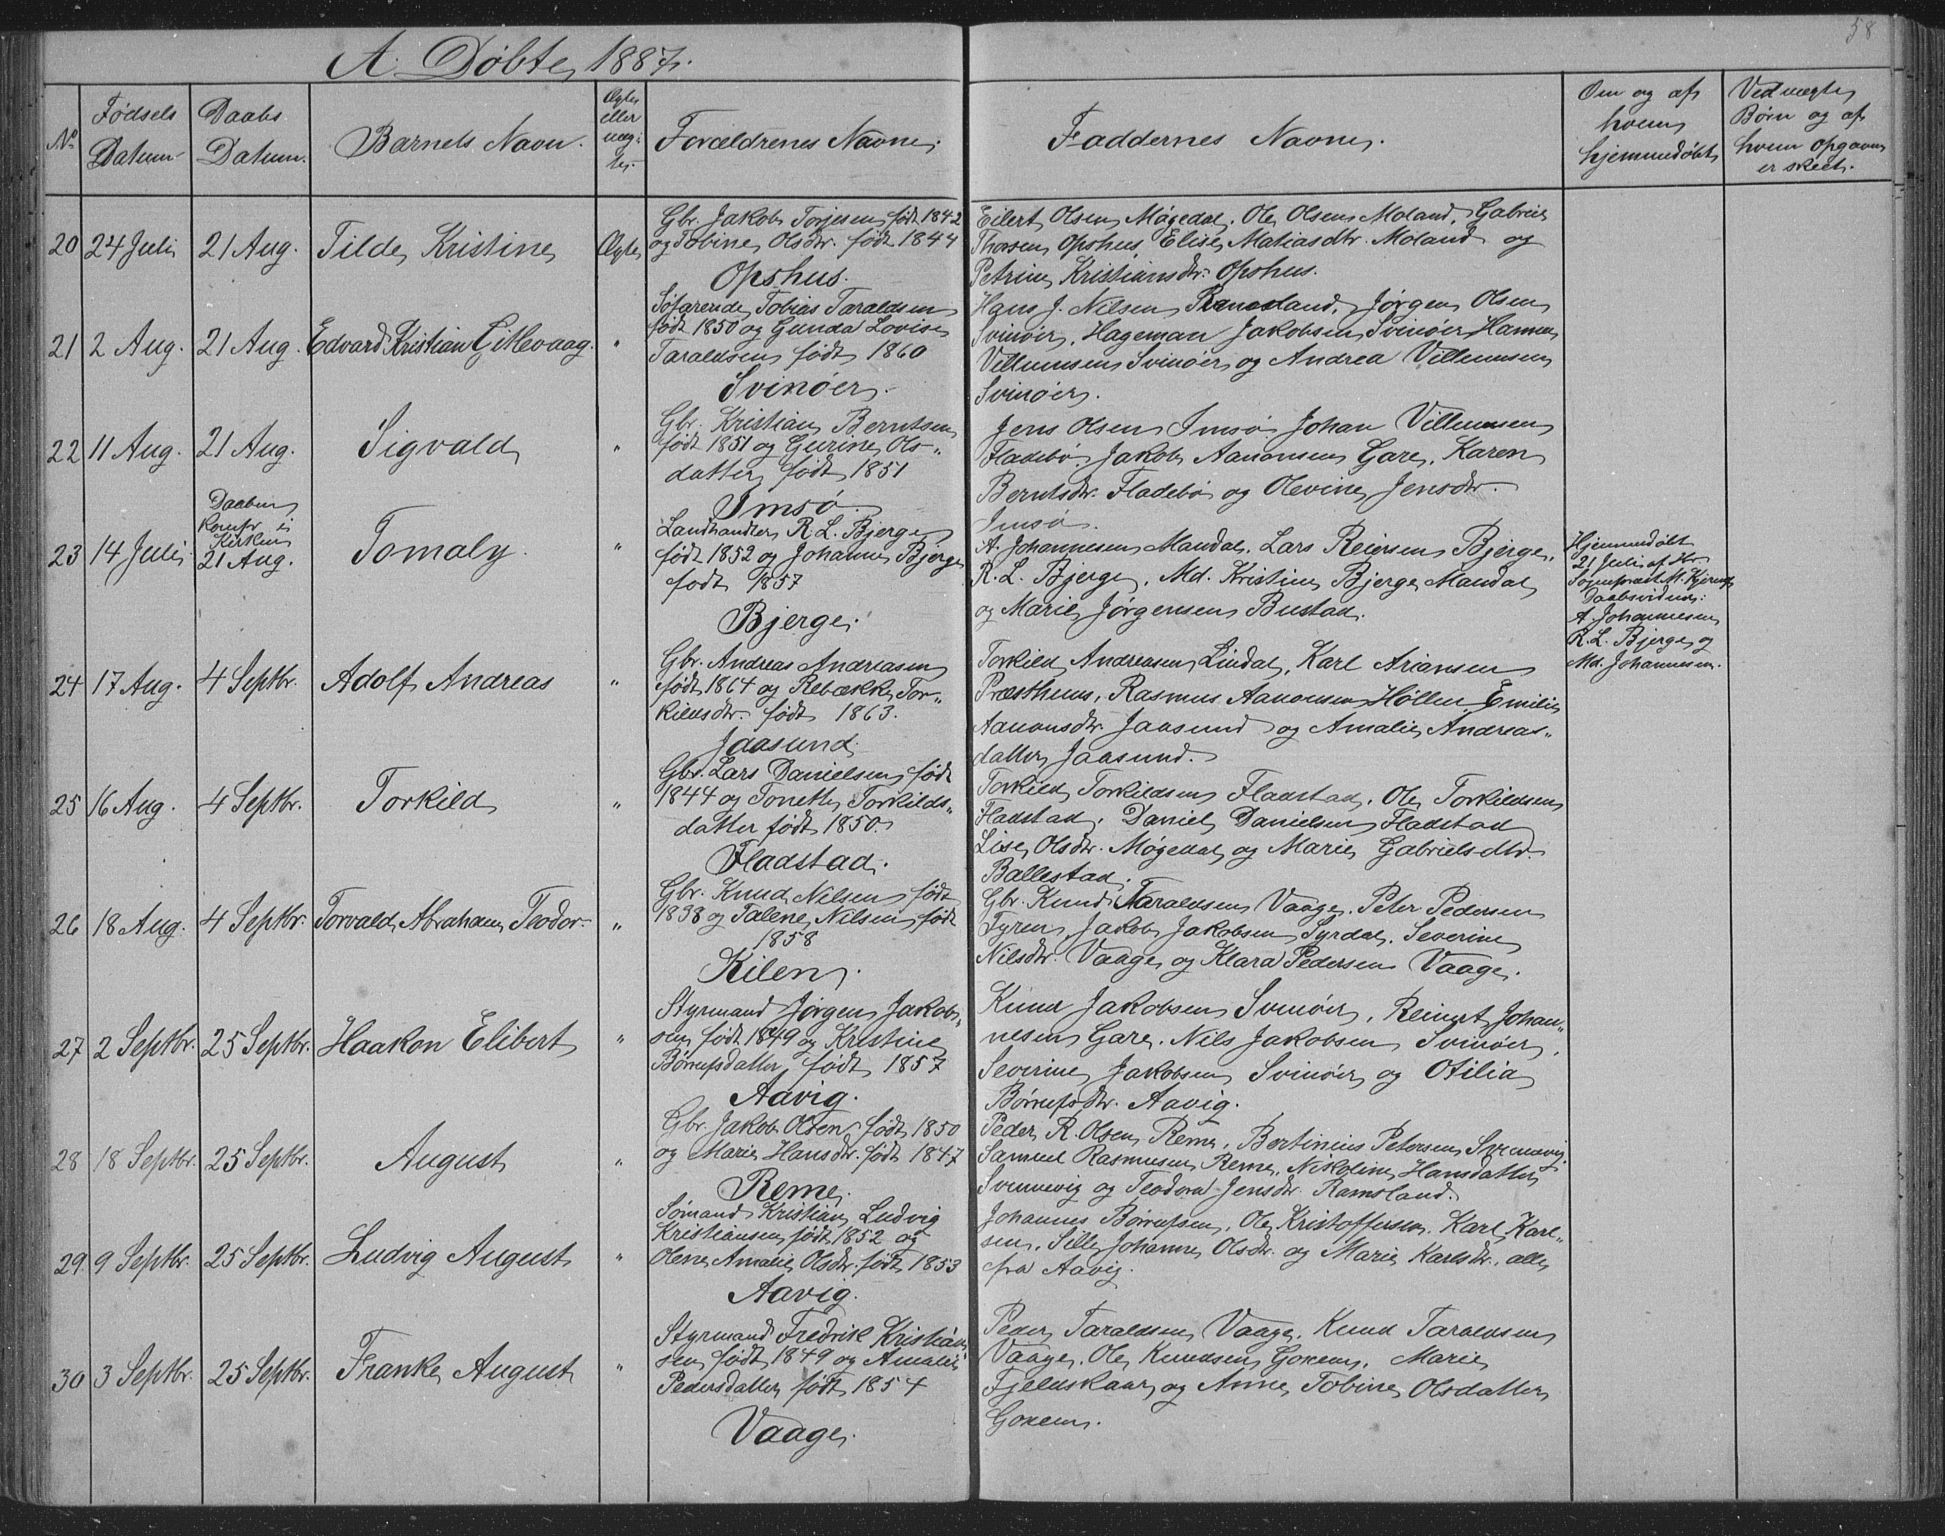 58
A. Döbte, 1887.
No
Fødsels Datum
Daabs Datum.
Barnets Navn.
Ægte eller uæg-te.
Forældrenes Navne.
Faddernes Navne.
Om og af hvem hjemmedøbt
Ved uægte Børn og af hvem Opgaven er skeet.
20 24 Juli 21 Aug. Tilde Kristine Ægte
Gbr. Jakob Torjesen født 1842
og Tobine Olsdtr. født 1844
Opshus.
Eilert Olsen Møgedal, Ole Olsen Moland, Gabriel
Thorsen Opshus, Elise Matiasdtr. Moland og
Petrine Kristiansdtr. Opshus.
21 2 Aug. 21 Aug. Edvard Kristian Gitlevaag. "
Søfarende Tobias Taraldsen
født 1850 og Gunda Lovise
Taraldsen født 1860
Svinöer.
Hans J. Nilsen Ramsland, Jørgen Olsen
Svinöer, Hageman Jakobsen Svinöer, Hanna
Villumsen Svinöer og Andrea Villumsen
Svinöer.
22 11 Aug. 21 Aug. Sigvald "
Gbr. Kristian Berntsen
født 1851 og Gurine Ols-
datter født 1851
Imsö.
Jens Olsen Imsö, Johan Villumsen
Fladebö, Jakob Aanonsen Gare, Karen
Berntsdtr. Fladebö og Olevine Jensdtr.
Imsö.
23 14 Juli
Daaben
Konfr. i
Kirken
21 Aug. Tomaly. "
Landhandler R. L. Bjerge
født 1852 og Johanne Bjerge
født 1857
Bjerge.
A. Johannesen Mandal, Lars Reiersen Bjerge,
R. L. Bjerge, Md. Kristine Bjerge Mandal
og Marie Jörgensen Bustad.
Hjemmedøbt
21 Juli af Hr.
Sognepræst M.
Daabsvidner:
A. Johannesen
R. L. Bjerge og
Md. Johannesen.
24 17 Aug. 4 Septbr. Adolf Andreas "
Gbr. Andreas Andreasen
født 1864 og Rebække Tor-
kildsdtr. født 1863.
Jaasund.
Torkild Andreasen Lindal, Karl Ariansen
Præsthuus, Rasmus Aanonsen Høllen, Emilie
Aanonsdtr. Jaasund og Amalie Andreas-
datter Jaasund.
25 16 Aug. 4 Septbr. Torkild "
Gbr. Lars Danielsen født
1844 og Tonette Torkilds-
datter født 1850.
Fladstad.
Torkild Torkildsen Fladstad, Ole Torkildsen
Fladstad, Daniel Danielsen Fladstad
Lise Olsdtr. Møgedal og Marie Gabrielsdtr.
Ballestad.
26 18 Aug. 4 Septbr. Torvald Abraham Teodor "
Gbr. Knud Nilsen født
1838 og Talene Nilsen født
1858
Kilen.
Gbr. Knud Taraldsen Vaage, Peter Pedersen
Fyren, Jakob Jakobsen Syrdal, Severine
Nilsdtr. Vaage og Klara Pedersen Vaage.
27 2 Septbr. 25 Septbr. Haakon Elibert "
Styrmand Jørgen Jakob-
sen født 1849 og Kristine
Börrufsdatter født 1857
Aavig.
Knud Jakobsen Svinöer, Reinert Johan-
nesen Gare, Nils Jakobsen Svinöer,
Severine Jakobsen Svinöer og Otilia
Börrufsdtr. Aavig.
28 18 Septbr. 25 Septbr. August "
Gbr. Jakob Olsen født 1850
og Marie Hansdtr. født 1847
Reme.
Peder R. Olsen Reme, Bertinius Petersen Svennevig,
Samuel Rasmusen Reme, Nikoline Hansdatter
Svennevig og Teodora Jensdtr. Ramsland.
29 9 Septbr. 25 Septbr. Ludvig August "
Sømand Kristian Ludvig
Kristiansen født 1852 og
Olene Amalie Olsdtr. født 1853
Aavig.
Johannes Börrufsen, Ole Kristoffersen, Karl Karl-
sen, Sille Johanne Olsdtr. og Marie Karlsdtr. alle
fra Aavig.
30 3 Septbr. 25 Septbr. Franke August "
Styrmand Fredrik Kristian-
sen født 1849 og Amalie
Pedersdatter født 1854
Vaage.
Peder Taraldsen Vaage, Knud Taraldsen
Vaage, Ole Knudsen Goxem, Marie
Fjeldskaar og Anne Tobine Olsdatter
Goxem.